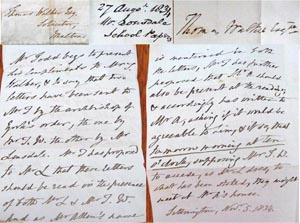 Thomas Walker Esq
Malton
27 Augst. 1834
Mr Lonsdale
School Papers
Thomas Walker Esqre
Mr Todd begs to present
his compliments to Mr
Walker, & to say that two
letters have been sent to
Mr T by the archbishop of
York's order, the one by
Mr J. W. the other by Mr
Lonsdale. Mr T has proposed
to Mr L that these letters
should be read in the presence
of both Mr L & Mr T.
and as Mr Allen's name
is mentioned in both
the letters, Mr T has further
proposed that Mr A should
also be present at the reading,
& accordingly has written to
Mr A, asking if it would be
agreeable to him; & if so, that
tomorrow morning at ten
o'clock, supposing Mr L
to accede, as Mr L does, to
what has been stated, they might
meet at Mr A's house.
Settrington, Nov. 5, 1834.